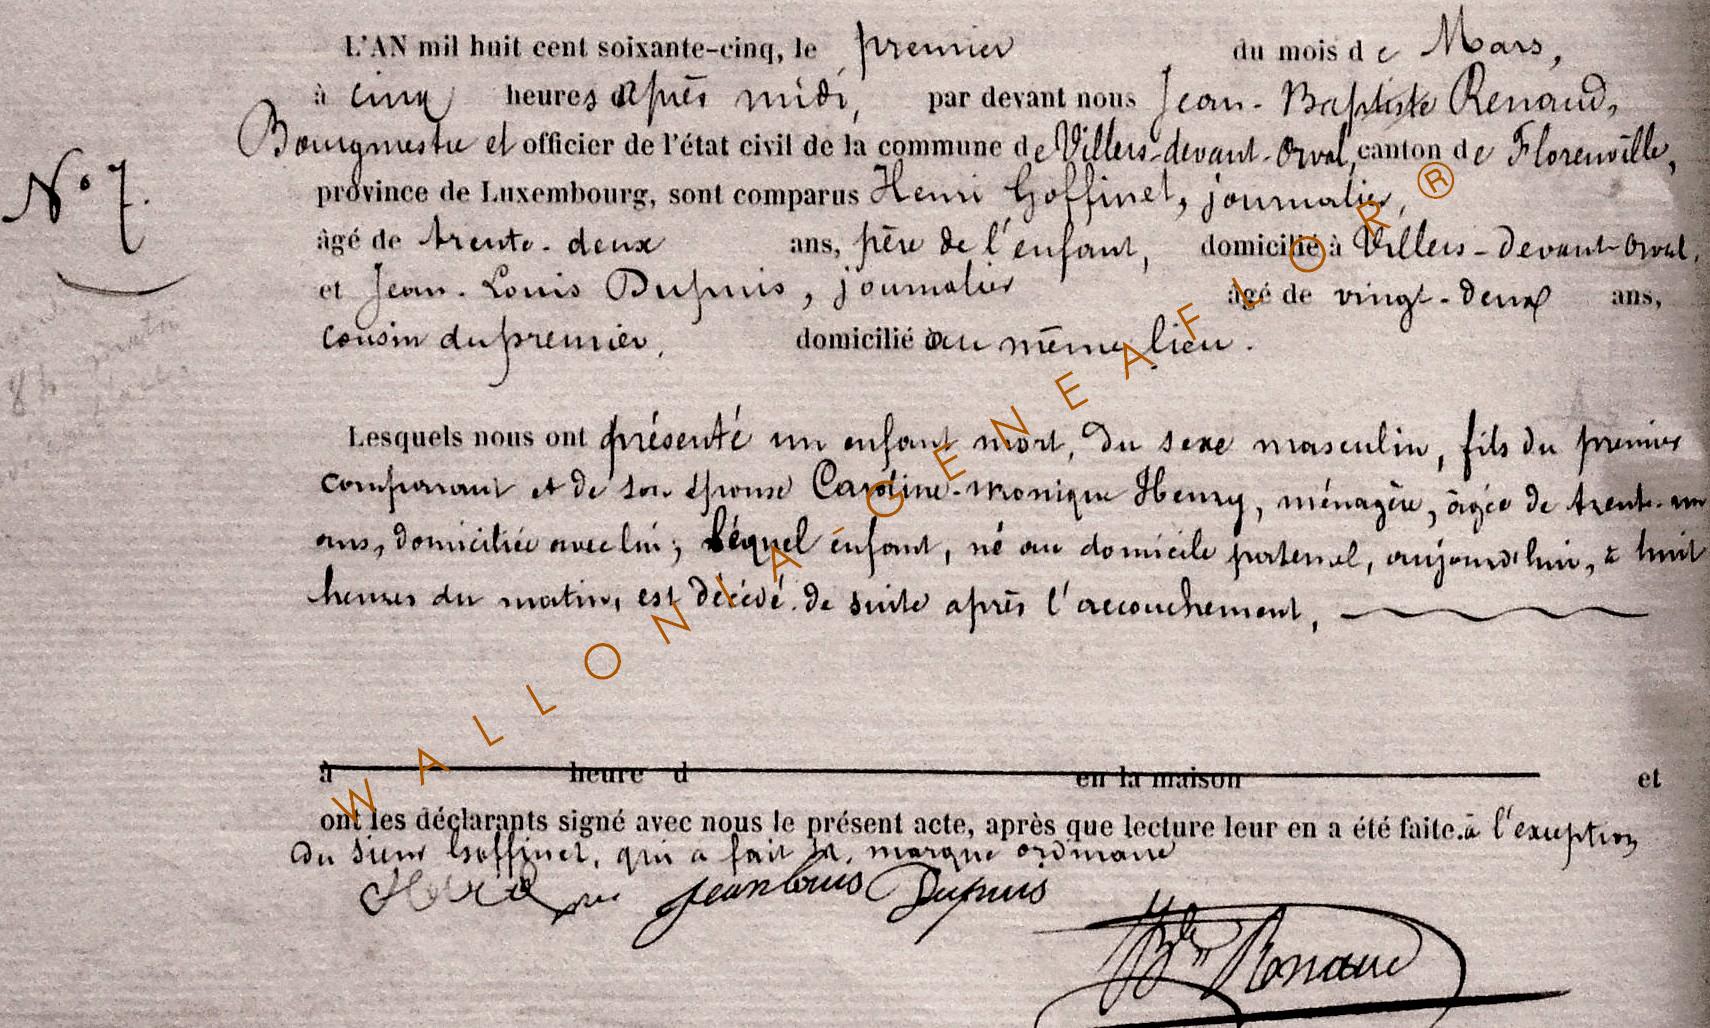 L'AN mil huit cent soixante-cinq, le premier du mois de Mars,
à cinq heures après midi, par devant nous Jean-Baptiste Renaud,
Bourgmestre et officier de l'état civil de la commune de Villers-devant-Orval, canton de Florenville,
N° 7.
province de Luxembourg, sont comparus Henri Goffinet, journalier,
âgé de trente-deux ans, père de l'enfant, domicilié à Villers-devant-Orval,
et Jean-Louis Dupuis, journalier âgé de vingt-deux ans,
cousin du premier, domicilié au même lieu.
Lesquels nous ont présenté un enfant mort, du sexe masculin, fils du premier
comparant et de son épouse Caroline-Monique Henry, ménagère, âgée de trente-un
ans, domiciliée avec lui; lequel enfant, né au domicile paternel, aujourd'hui, à huit
heures du matin, est décédé de suite après l'accouchement,
à heure d en la maison et
ont les déclarants signé avec nous le présent acte, après que lecture leur en a été faite. à l'exception
du sieur Goffinet, qui a fait sa marque ordinaire
Jean Louis Dupuis
Renaud
WALLONIA GENEAFLOR ®